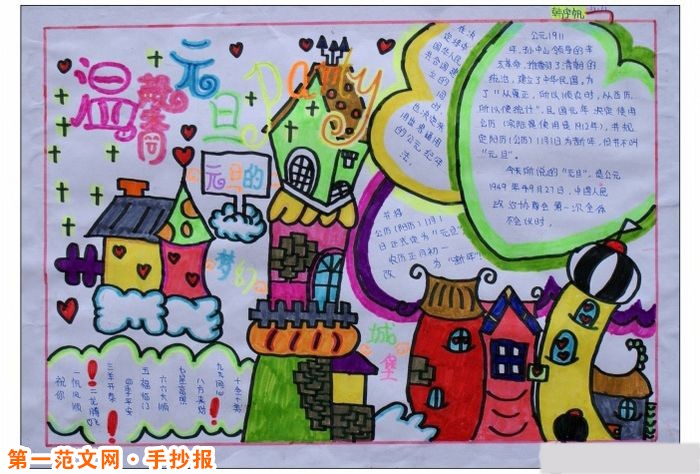 韩宇帆
温馨
元旦Party
元旦的
梦幻
城堡
在决
定建中
华人民
共和国建
立的
同时
也决定采
用世界通用
的公元纪年
法,
公元1911
年,孙中山领导的辛
亥革命,推翻了清朝的
统治,建立了中华民国,为
了"从夏正,所以顺农时,从西历,
所以便统计",民国元年决定使用
公历(实际是使用是1912年),并规
定阳历(公历)1月1日为新年,但并不叫
"元旦"。
今天所说的"元旦",是公元
1949年9月27日,中国人民
政治协商会第一次全体
会议时,
并将
公历(阳历)1月1
日正式定为"元旦"
农历正月初一
改为"新年"!
祝你
一帆风顺
二龙腾飞
三羊开泰
四季平安
五福临门
六六大顺
七星高照
八方来财
九九同心
十全十美
第一范文网·手抄报